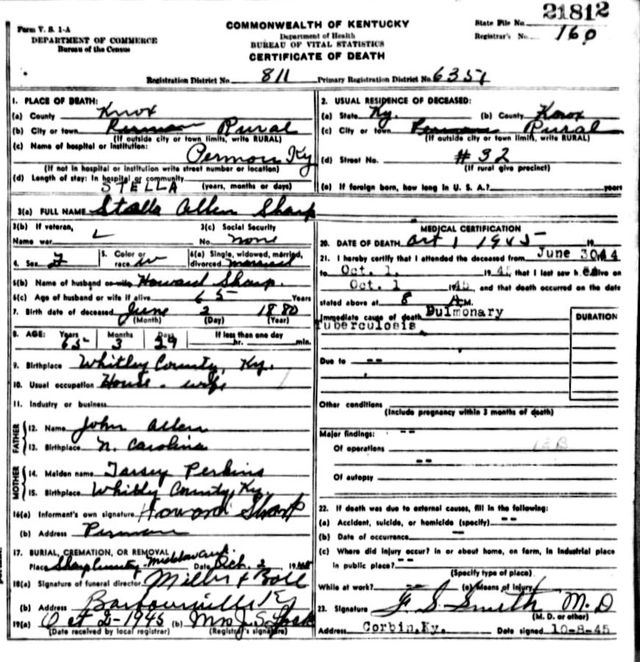 21812
Form V. S. 1-A
DEPARTMENT OF COMMERCE
Bureau of the Census
COMMONWEALTH OF KENTUCKY
Department of Health
BUREAU OF VITAL STATISTICS
CERTIFICATE OF DEATH
State File No.
Registrar's No. 160
Registration District No. 811 Primary Registration District No. 6351
1. PLACE OF DEATH:
(a) County Knox
(b) City or town Rural
(If outside city or town limits, write RURAL)
(c) Name of hospital or institution:
Permon Ky
(If not in hospital or institution write street number or location)
(d) Length of stay: In hospital or community
STELLA (years, months or days)
2. USUAL RESIDENCE OF DECEASED:
(a) State Ky. (b) County Knox
(c) City or town Rural
(If outside city or town limits, write RURAL)
(d) Street No. #32
(If rural give precinct)
(e) If foreign born, how long in U. S. A.? years
3(a) FULL NAME Stella Allen Sharp
3(b) If veteran,
Name war
3(c) Social Security
No. none
4. Sex F
5. Color or
race W
6(a) Single, widowed, married,
divorced married
6(b) Name of husband or wife Howard Sharp
6(c) Age of husband or wife if alive 65 Years
7. Birth date of deceased June 2 1880
(Month) (Day) (Year)
8. AGE: Years Months Days If less than one day
65 3 29 hr. min.
9. Birthplace Whitley County, Ky.
10. Usual occupation House-wife
11. Industry or business
FATHER
12. Name John Allen
13. Birthplace N. Carolina
MOTHER
14. Maiden name Perkins
15. Birthplace Whitley County, Ky
16(a) Informant's own signature Howard Sharp
(b) Address Permon
17. BURIAL, CREMATION, OR REMOVAL
Place Date Oct. 2
18(a) Signature of funeral director Miller &
(b) Address Barbourville Ky
19(a) Oct 2-1945 (b) Mrs J. S.
(Date received by local registrar) (Registrar's signature)
MEDICAL CERTIFICATION
20. DATE OF DEATH Oct 1 1945 19
21. I hereby certify that I attended the deceased from June 30 44
to Oct. 1 1945 that I last saw h alive on
Oct. 1 1945 and that death occurred on the date
stated above at 8 A.M.
Immediate cause of death Pulmonary
Tuberculosis
DURATION
Due to --
Other conditions --
(Include pregnancy within 3 months of death)
Major findings:
Of operations --
Of autopsy --
22. If death was due to external causes, fill in the following:
(a) Accident, suicide, or homicide (specify) --
(b) Date of occurrence --
(c) Where did injury occur? in or about home, on farm, in industrial place
in public place? --
(Specify type of place)
While at work? (e) Means of injury
23. Signature F S Smith M.D
(M. D. or other)
Address Corbin, Ky. Date signed 10-8-45